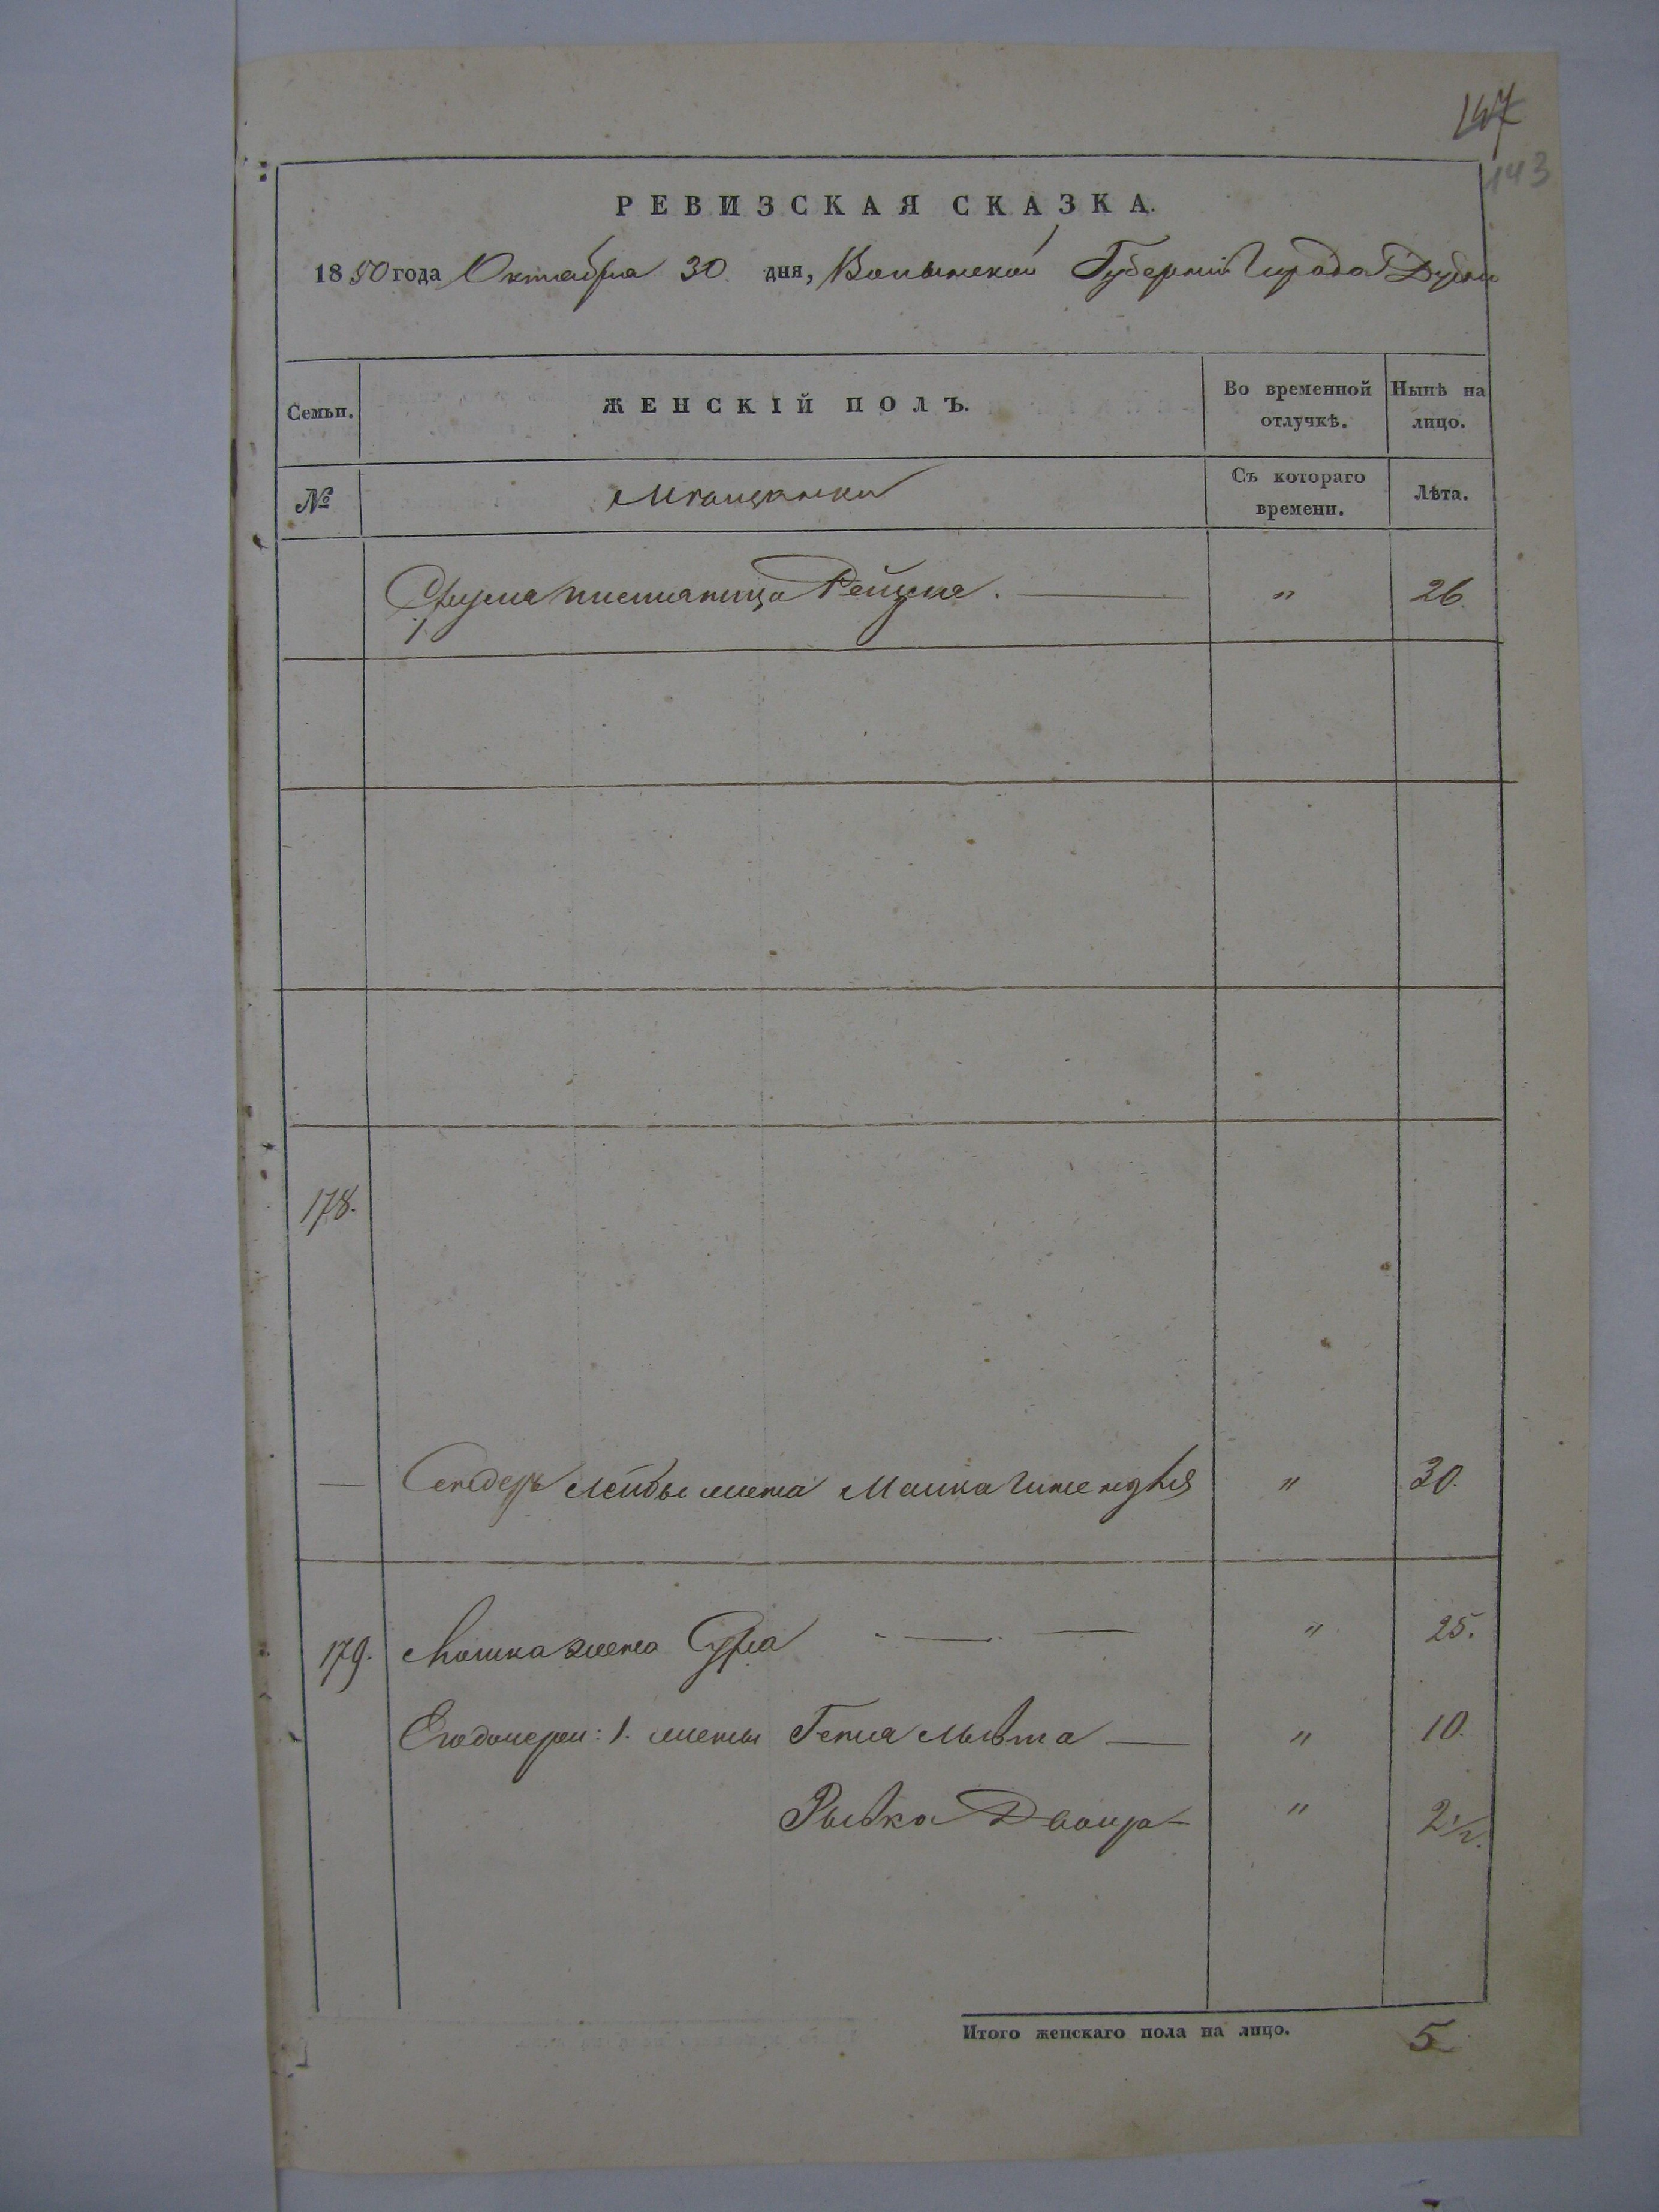 147
143
РЕВИЗСКАЯ СКАЗКА.
1850 года Октября 30 дня, Волынской Губерніи Города Дубна
Семьи. ЖЕНСКІЙ ПОЛЪ. Во временной отлучкѣ. Нынѣ на лицо.
№ Мѣщанки Съ котораго времени. Лѣта.
Рейзля. " 26
178.
— Лейбы жена Малка " 30.
179. Мошка жена Сура " 25.
Его дочери: 1. жены Геня " 10.
Рывка Двойра " 2 1/2.
Итого женскаго пола на лицо. 5